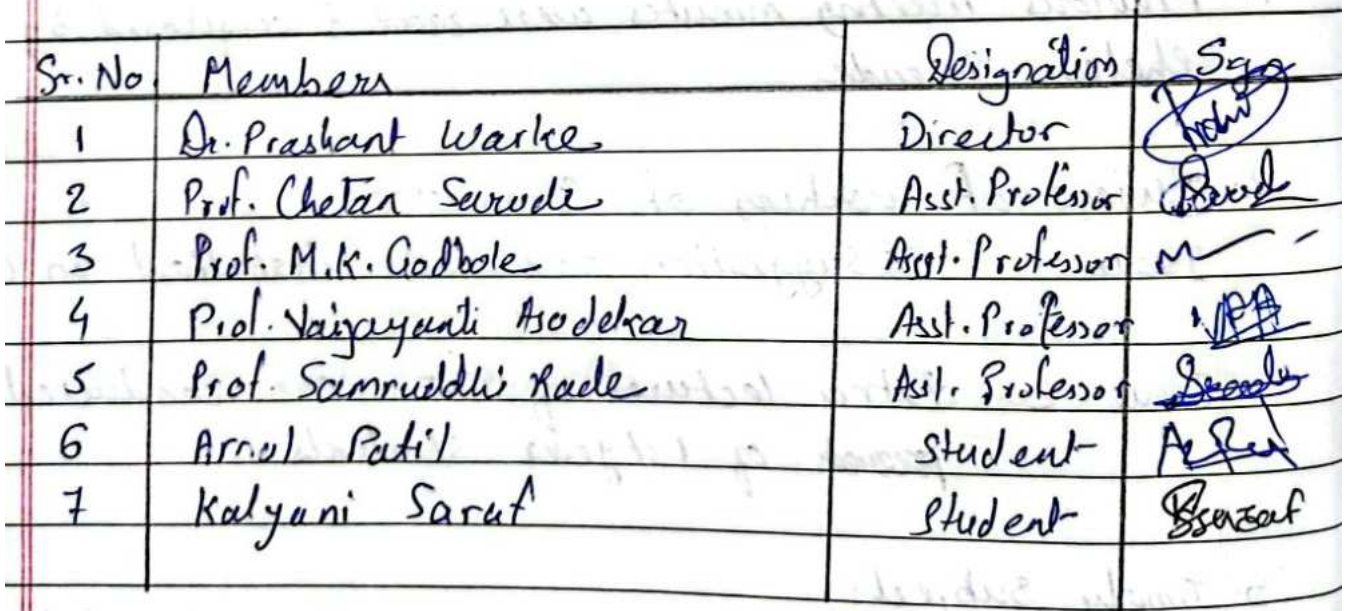 Sr. No. Members Designation Sign
1 Dr. Prashant Warke Director
2 Prof. Chetan Sarode Asst. Professor
3 Prof. M.K. Godbole Asst. Professor
4 Prof. Vaijayanti Asodekar Asst. Professor VPA
5 Prof. Samruddhi Rade Asst. Professor
6 Amol Patil Student
7 Kalyani Saraf Student KSSaraf